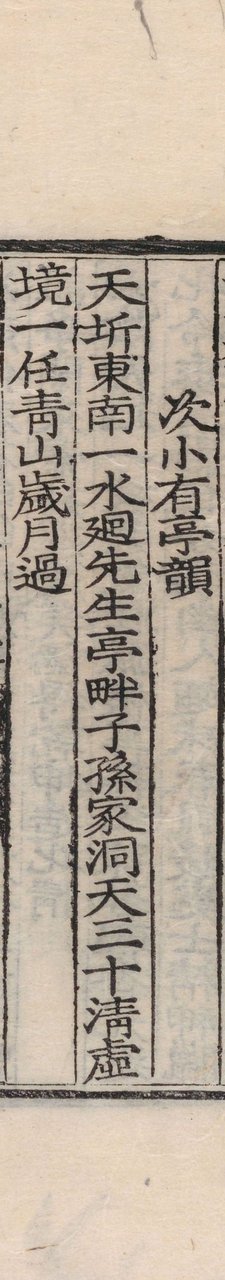 次小有亭韻
天圻東南一水廻先生亭畔子孫家洞天三十淸虛
境一任靑山歲月過